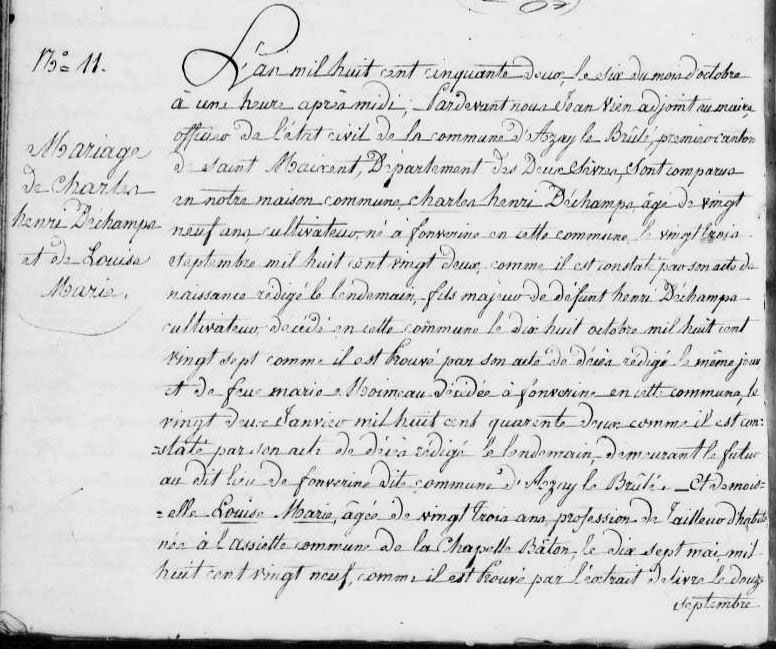 N.o 11.
Mariage
de Charles
henri Dechamps
et de Louise
Marie.
L'an mil huit cent cinquante deux, le six du mois d'octobre
à une heure après midi, Pardevant nous Jean Vien adjoint au maire,
officier de l'état civil de la commune d'Azay le Brûlé, premier canton
de saint Maixent, Département des Deux Sèvres, Sont comparus
en notre maison commune, Charles henri Déchamps, âgé de vingt
neuf ans, cultivateur, né à fonverine en cette commune, le vingt trois
septembre mil huit cent vingt deux, comme il est constaté par son acte de
naissance rédigé le lendemain, fils majeur de défunt henri Déchamps
cultivateur, décédé en cette commune le dix huit octobre mil huit cent
vingt sept comme il est trouvé par son acte de décès rédigé le même jour,
et de feue marie Moineau décédée à fonverine en cette commune, le
vingt deux Janvier mil huit cent quarente deux comme il est con-
-staté par son acte de décès rédigé le lendemain, demeurant le futur
au dit lieu de fonverine dite commune d'Azay le Brûlé. _ Et demois-
-elle Louise Marie, âgée de vingt trois ans, profession de tailleur d'habits
née à l'assiette commune de la Chapelle Bâton, le dix sept mai, mil
huit cent vingt neuf, comme il est trouvé par l'extrait délivré le douze
septembre